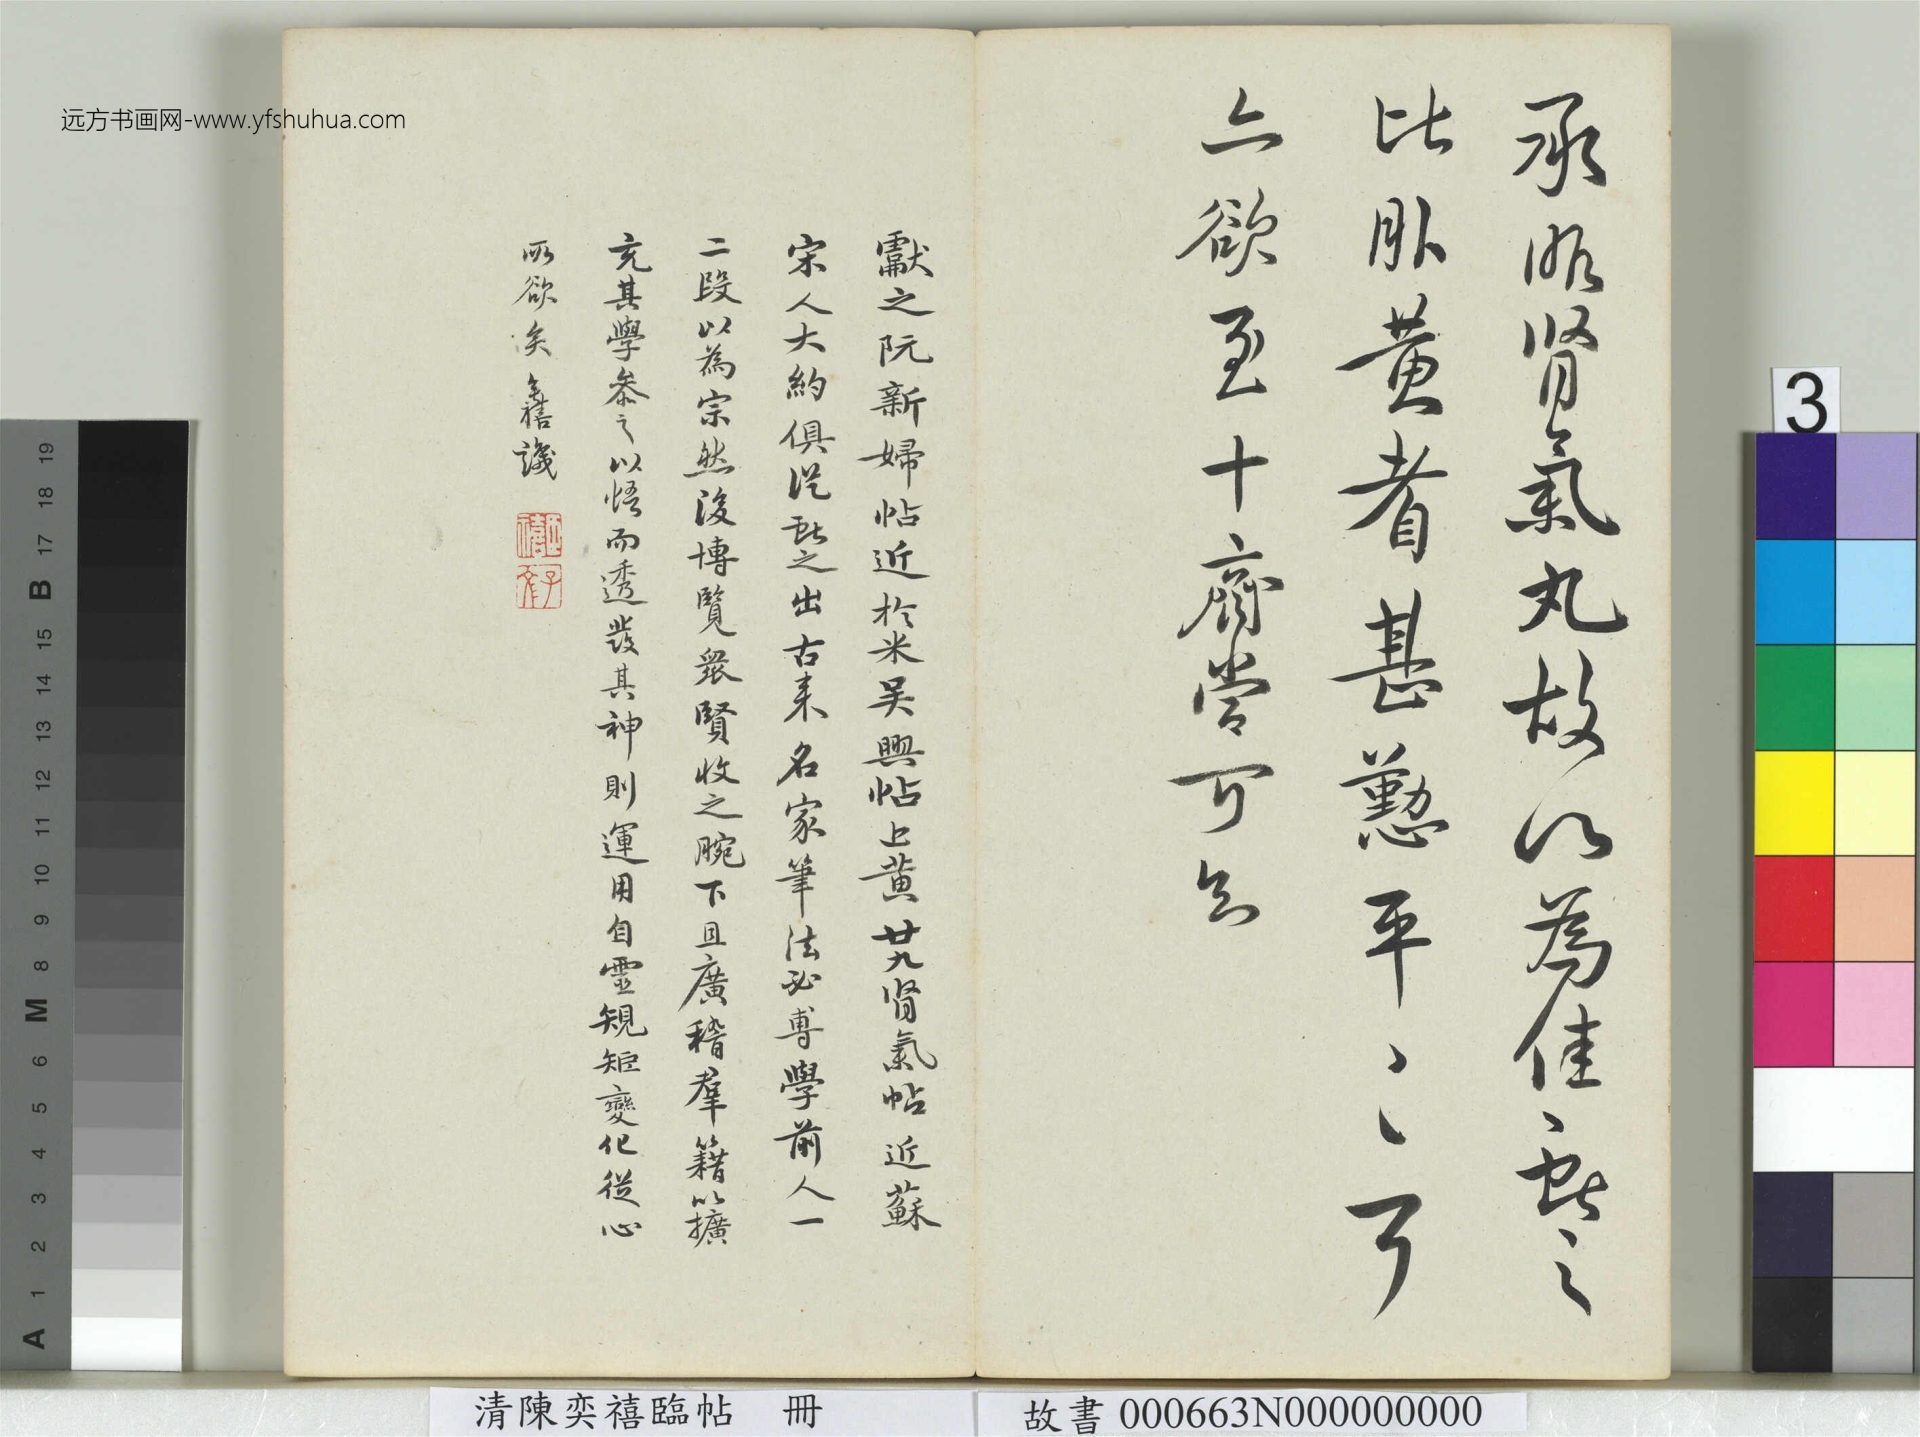 承服腎氣丸故以為佳獻之
比服黃耆甚懃平平耳
亦欲至十齊當可知
獻之阮新婦帖近於米吳興帖上黃廿九腎氣帖近蘇
宋人大約俱從獻之出古來名家筆法必專學前人一
二段以為宗然後博覽眾賢收之腕下且廣稽羣籍以擴
充其學參之以悟而透發其神則運用自靈規矩變化從心
所欲矣奕禧識
远方书画网-www.yfshuhua.com
清陳奕禧臨帖 冊
故書 000663N000000000
3
19
18
17
B
15
14
13
12
11
10
9
8
M
6
5
4
3
2
1
A